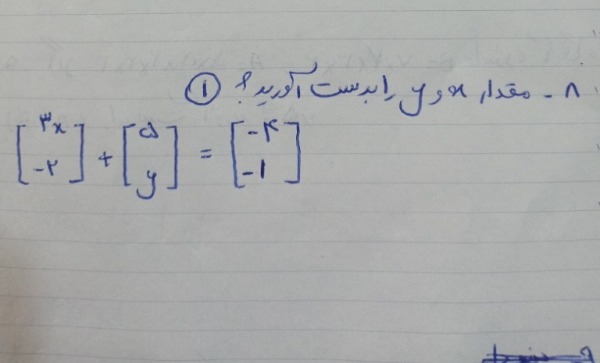 ۸ - مقدار x و y را بدست آورید؟ ①
[۳x -۲] + [۵ y] = [-۴ -۱]